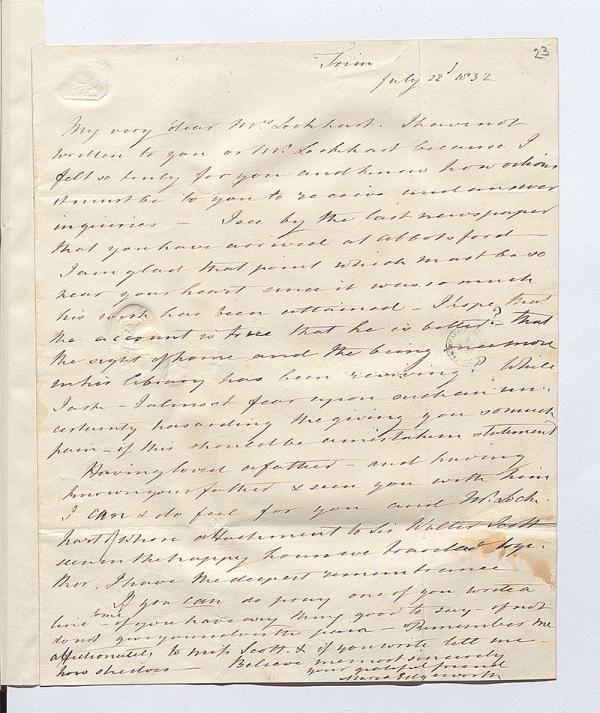 23
Trim
July 22d 1832
My very dear Mrs Lockhart. I have not
written to you or Mr Lockhart because I
felt so truly for you and knew how odious
it must be to you to receive and answer
inquiries — I see by the last newspaper
that you have arrived at Abbotsford —
I am glad that point which must be so
near your heart since it was so much
his wish has been attained — I hope that
the account is true that he is better? — that
the sight of home and the being once more
in his library has been reviving? While
I ask — I almost fear upon such an un-
certainty hazarding the giving you so much
pain — if this should be a mistaken statement
Having loved a father — and having
known your father & seen you with him
I can & do feel for you and Mr Lock-
hart, whose attachment to Sir Walter Scott
seen in the happy hours we traveled toge-
ther, I have the deepest remembrance
If you can do pray one of you write a
line to me if you have any thing good to say — if not
do not give yourselves the pain — Remember me
affectionately to Miss Scott. & if you write tell me
how she does — Believe me most sincerely
your grateful friend
Maria Edgeworth